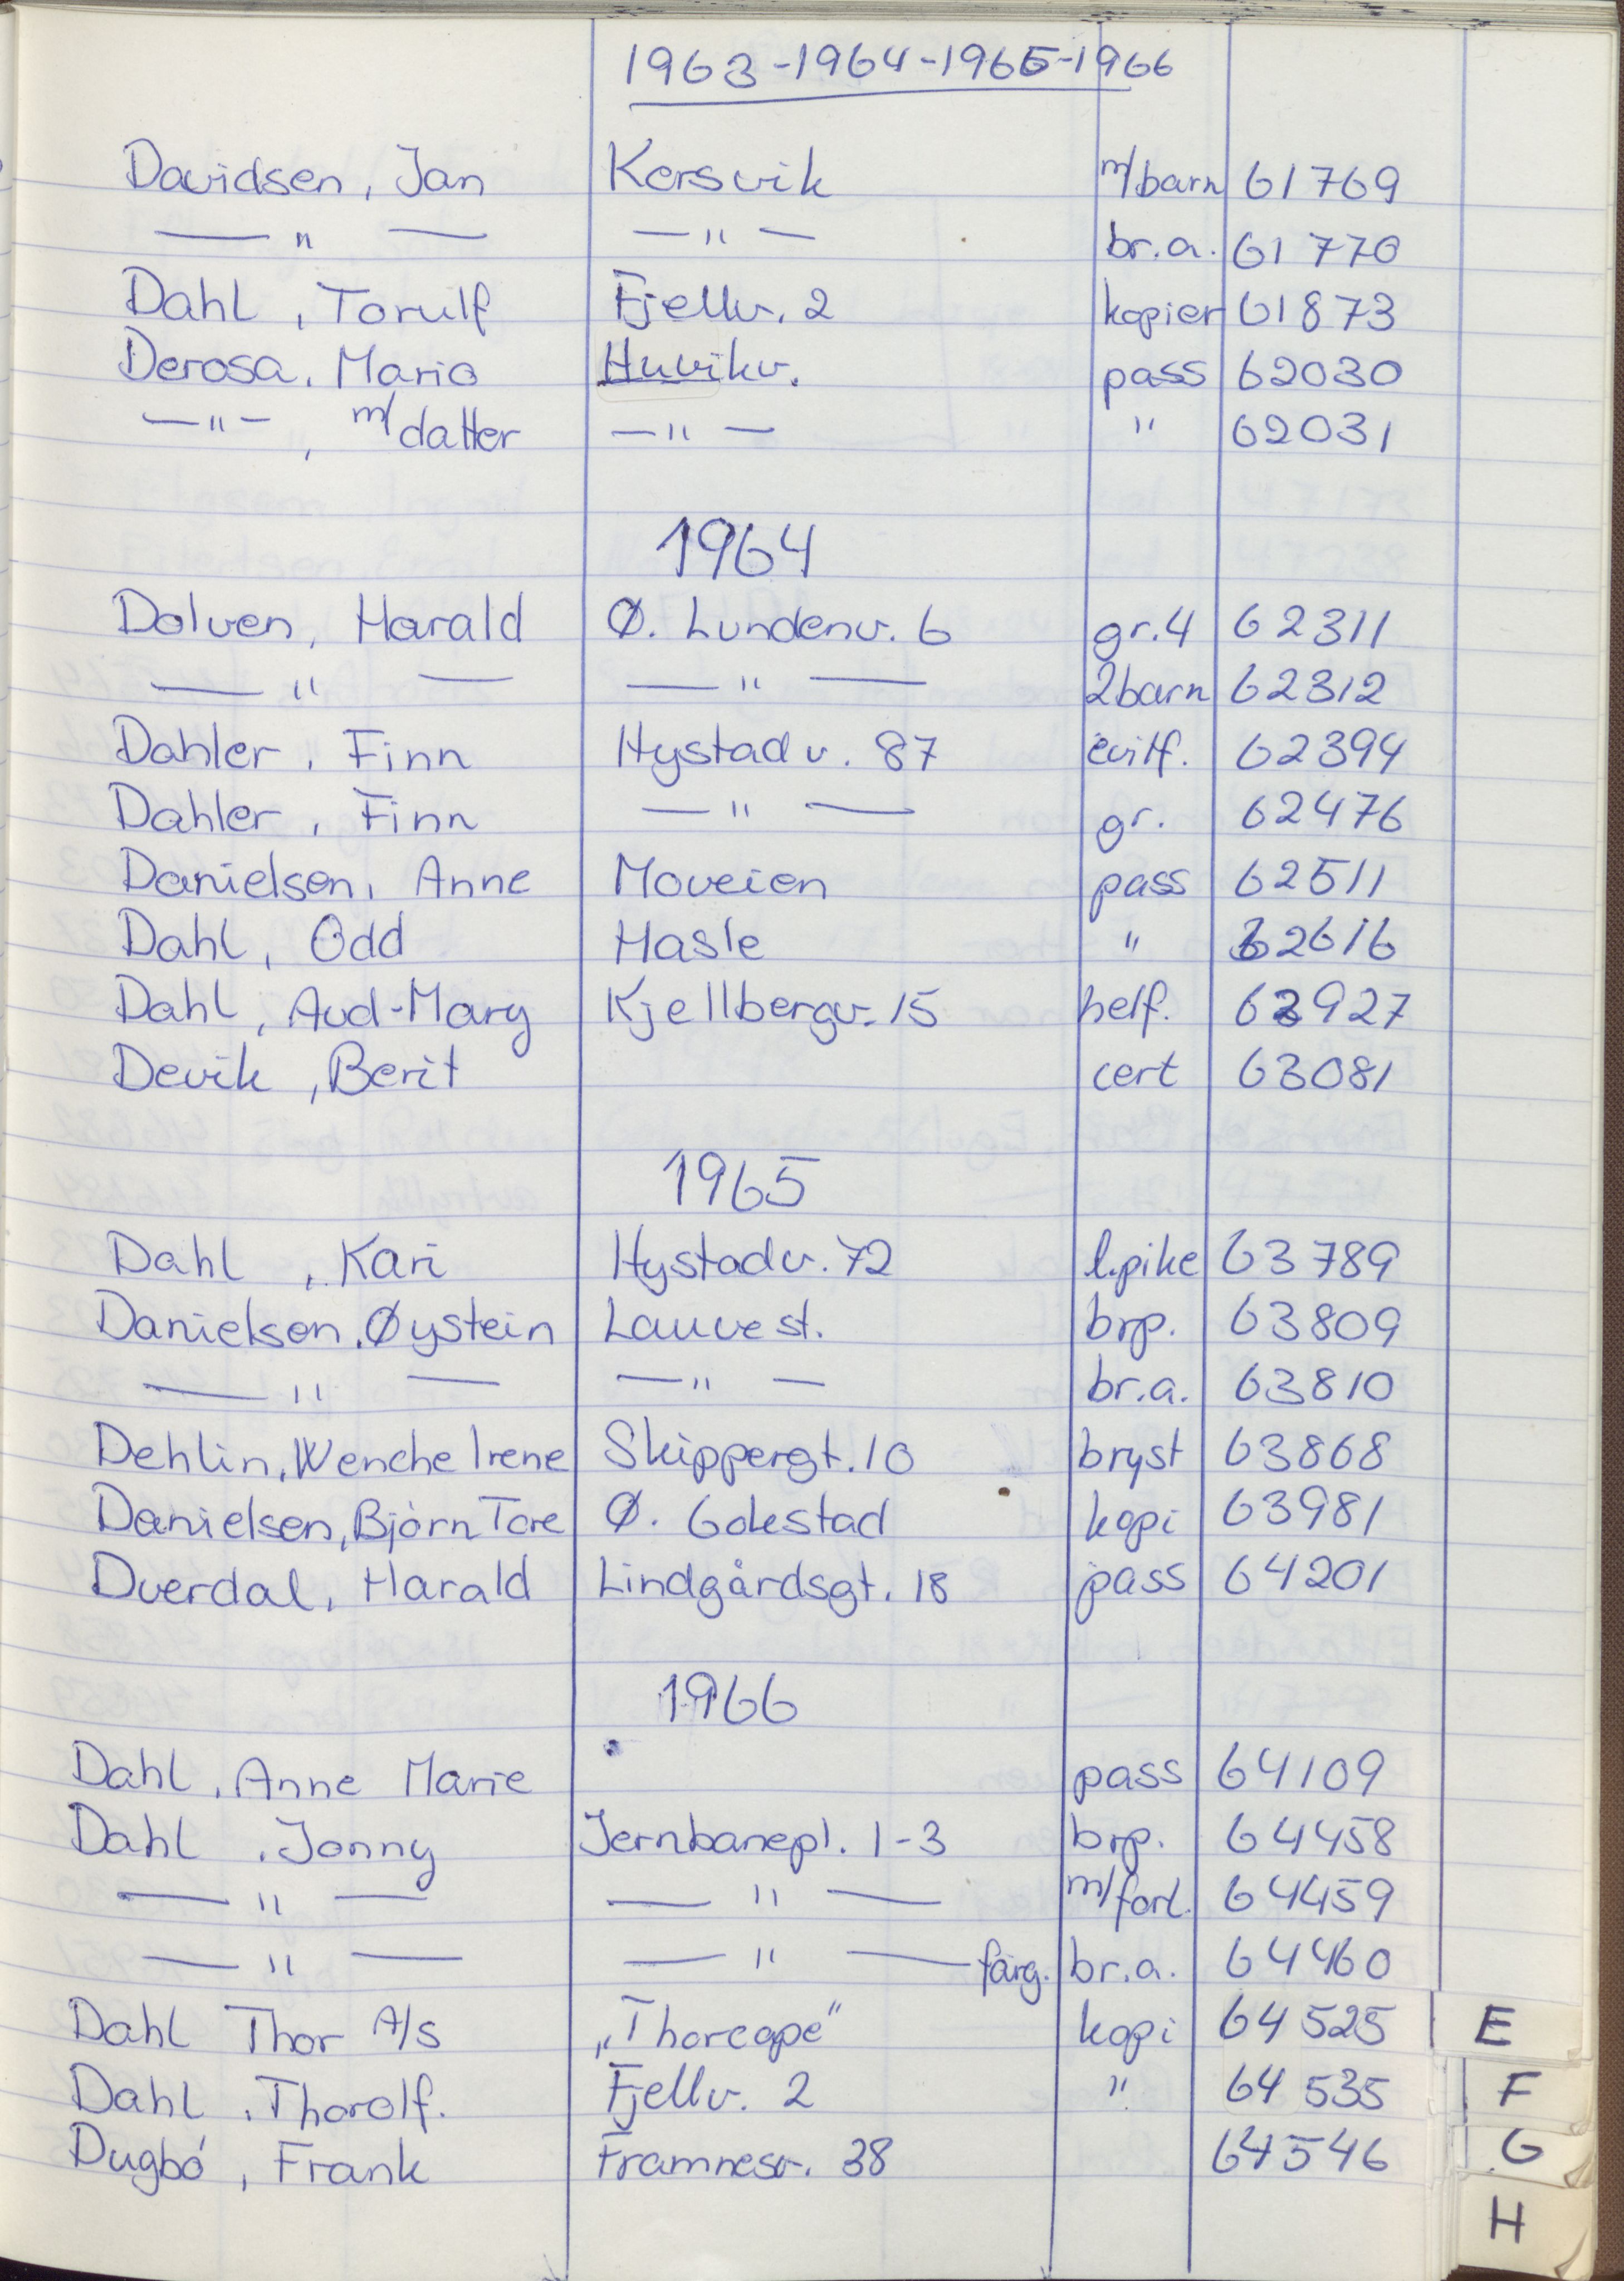 1963-1964-1965-1966
Davidsen, Jan Kersvik m/barn 61769
— " — — " — br.a. 61770
Dahl, Torulf Fjellv. 2 kopier 61873
Derosa, Mario Huvikv. pass 62030
— " —, m/datter — " — " 62031
1964
Dolven, Harald Ø. Lundenv. 6 gr.4 62311
— " — — " — 2barn 62312
Dahler, Finn Hystadv. 87 62394
Dahler, Finn — " — gr. 62476
Danielsen, Anne Moveien pass 62511
Dahl, Odd Hasle " 62616
Dahl, Aud-Mary Kjellbergv. 15 helf. 62927
Devik, Berit cert 63081
1965
Dahl, Kari Hystadv. 72 l.pike 63789
Danielsen, Øystein Lauve st. brp. 63809
— " — — " — br.a. 63810
Dehlin, Wenche Irene Skippergt. 10 bryst 63868
Danielsen, Bjørn Tore Ø. Gokestad kopi 63981
Dverdal, Harald Lindgårdsgt. 18 pass 64201
1966
Dahl, Anne Marie pass 64109
Dahl, Jonny Jernbanepl. 1-3 brp. 64458
— " — — " — m/forl. 64459
— " — — " — farg. br.a. 64460
Dahl Thor A/s „Thorcape" kopi 64525
Dahl, Thorolf. Fjellv. 2 " 64535
Dugbø, Frank Framnesv. 38 64546
E
F
G
H